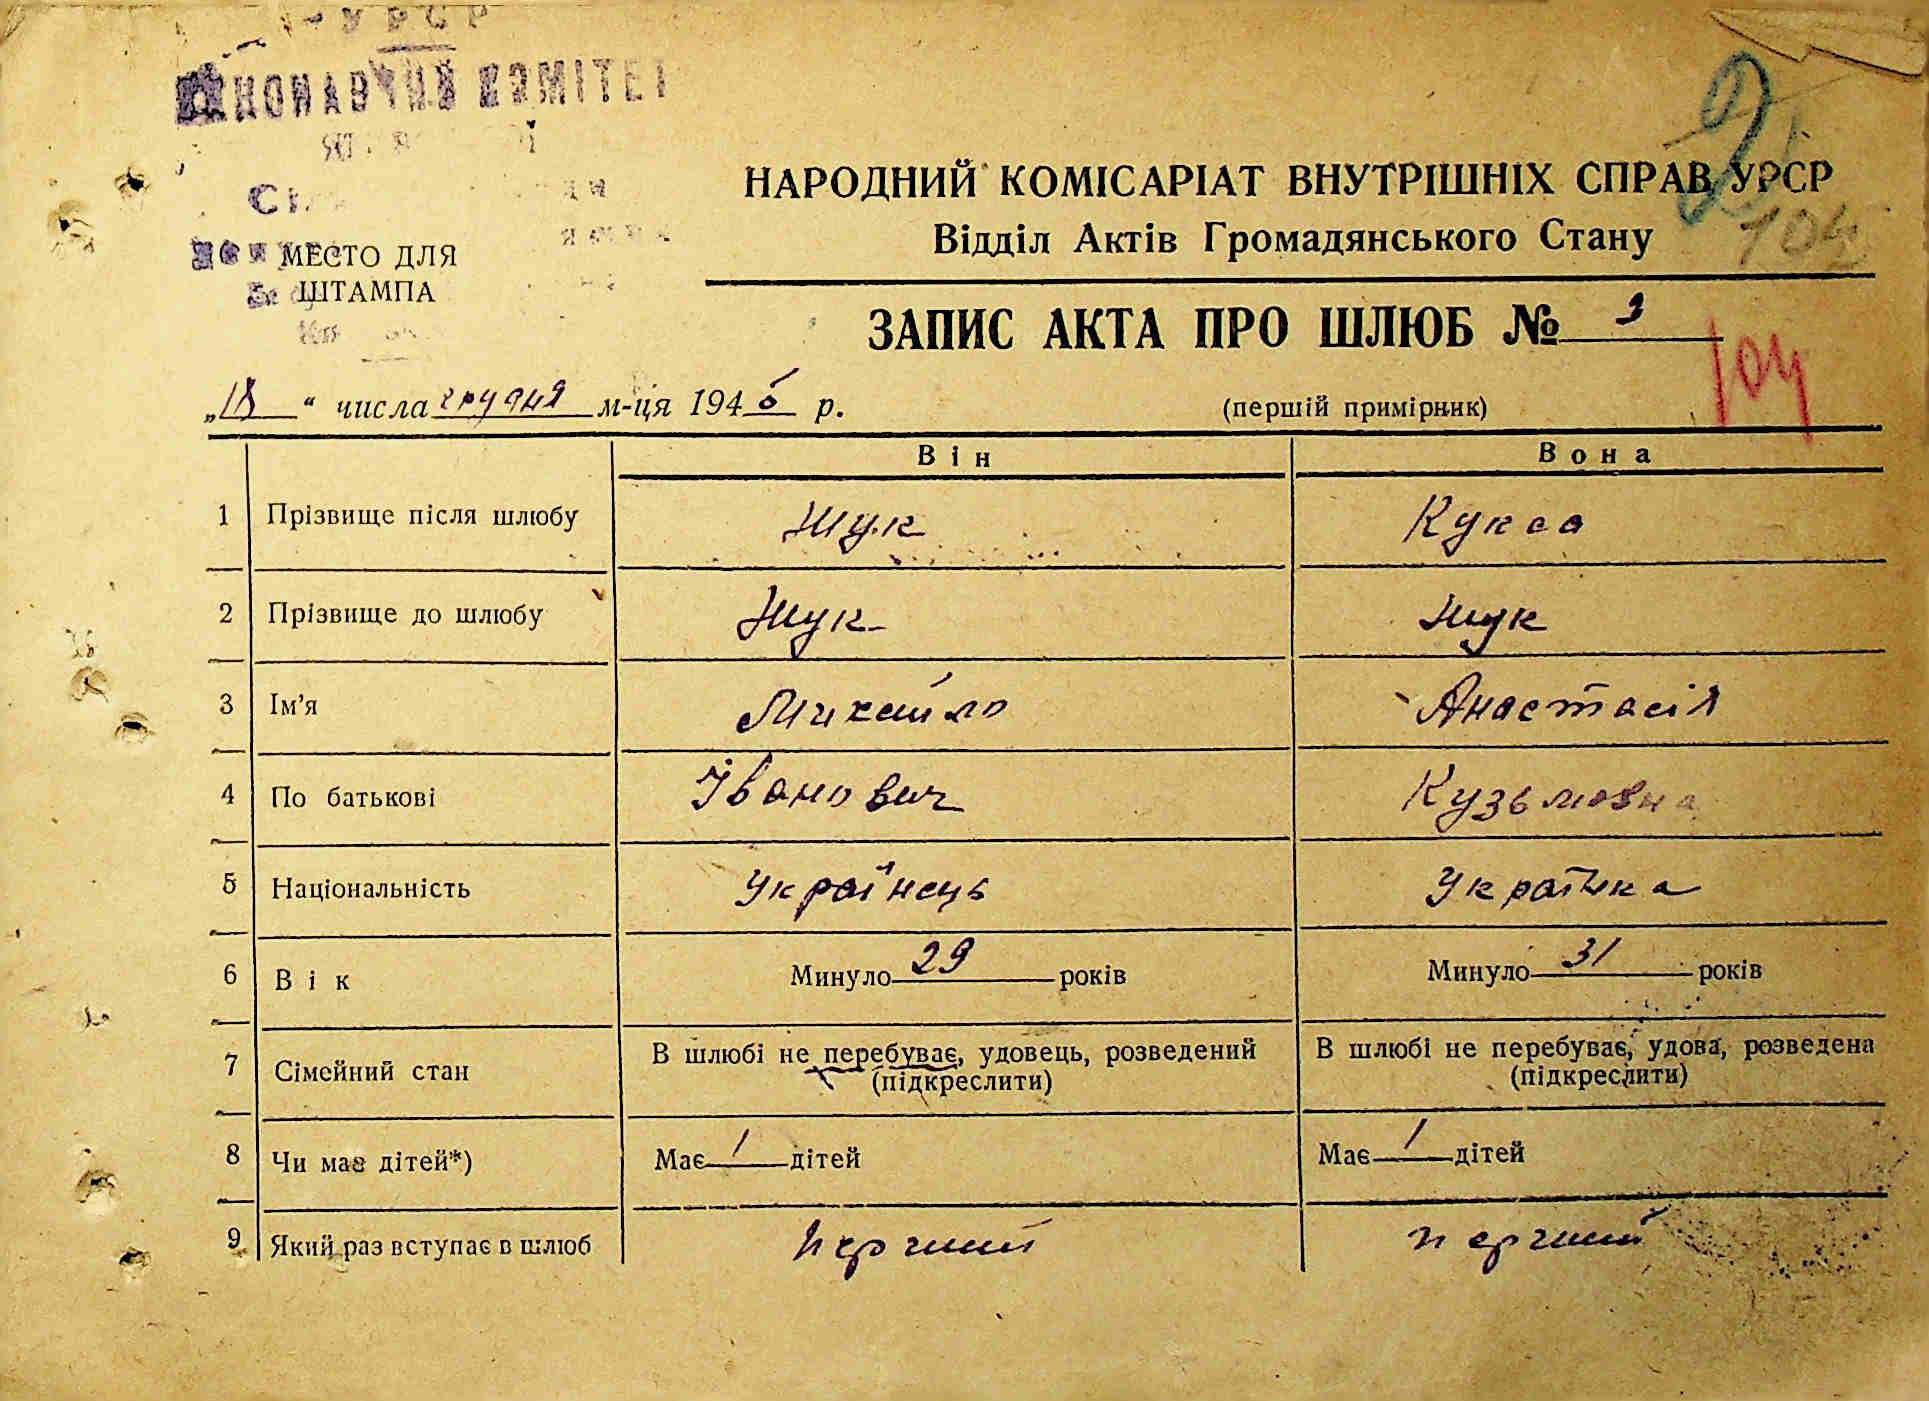 УРСР
ВИКОНАВЧИЙ КОМІТЕТ
МЕСТО ДЛЯ
ШТАМПА
НАРОДНИЙ КОМІСАРІАТ ВНУТРІШНІХ СПРАВ УРСР
104
Відділ Актів Громадянського Стану
ЗАПИС АКТА ПРО ШЛЮБ № 9
104
„18“ числа грудня м-ця 1946 р. (першій примірник)
Він Вона
1 Прізвище після шлюбу Жук Кукса
2 Прізвище до шлюбу Жук Жук
3 Ім'я Михайло Анастасія
4 По батькові Іванович Кузьмовна
5 Національність Українець Українка
6 Вік Минуло 29 років Минуло 31 років
7 Сімейний стан В шлюбі не перебуває, удовець, розведений В шлюбі не перебуває, удова, розведена
(підкреслити) (підкреслити)
8 Чи має дітей*) Має 1 дітей Має 1 дітей
9 Який раз вступає в шлюб перший перший